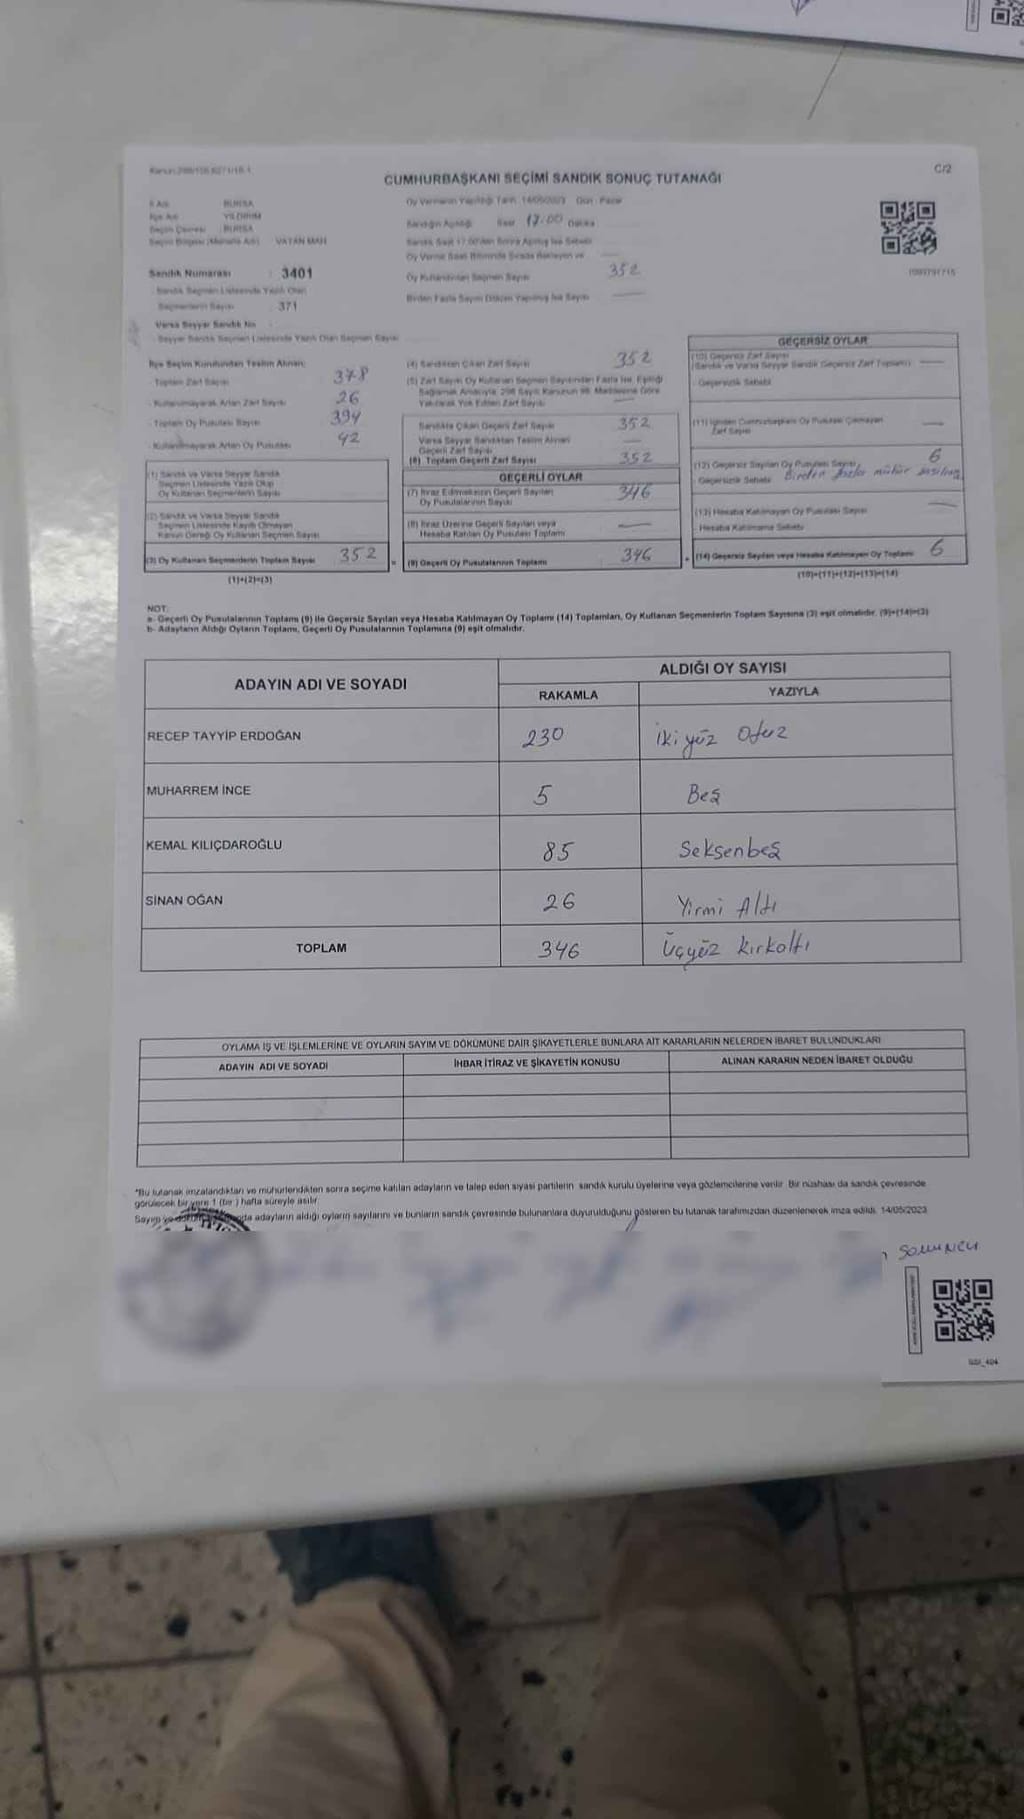 C/2
CUMHURBAŞKANI SEÇİMİ SANDIK SONUÇ TUTANAĞI
İl Adı : BURSA
İlçe Adı : YILDIRIM
Seçim Çevresi : BURSA
Seçim Bölgesi (Mahalle Adı) : VATAN MAH
Sandık Numarası : 3401
Sandık Seçmen Listesinde Yazılı Olan
Seçmenlerin Sayısı : 371
Varsa Seyyar Sandık No
Seyyar Sandık Seçmen Listesinde Yazılı Olan Seçmen Sayısı
Oy Vermenin Yapıldığı Tarih: 14/05/2023 Gün : Pazar
Sandığın Açıldığı Saat 17.00 Dakika
Oy Kullandırılan Seçmen Sayısı 352
İlçe Seçim Kurulundan Teslim Alınan;
Toplam Zarf Sayısı 378
Kullanılmayarak Artan Zarf Sayısı 26
Toplam Oy Pusulası Sayısı 394
Kullanılmayarak Artan Oy Pusulası 42
(1) Sandık ve Varsa Seyyar Sandık
Seçmen Listesinde Yazılı Olup
Oy Kullanan Seçmenlerin Sayısı
(2) Sandık ve Varsa Seyyar Sandık
Seçmen Listesinde Kayıtlı Olmayan
Kanun Gereği Oy Kullanan Seçmen Sayısı
(3) Oy Kullanan Seçmenlerin Toplam Sayısı 352
(1)+(2)=(3)
(4) Sandıktan Çıkan Zarf Sayısı 352
(5) Zarf Sayısı Oy Kullanan Seçmen Sayısından Fazla İse, Eşitliği
Sağlamak Amacıyla 298 Sayılı Kanunun 98. Maddesine Göre
Yakılarak Yok Edilen Zarf Sayısı
Sandıkta Çıkan Geçerli Zarf Sayısı 352
Varsa Seyyar Sandıktan Teslim Alınan
Geçerli Zarf Sayısı
(6) Toplam Geçerli Zarf Sayısı 352
GEÇERLİ OYLAR
(7) İtiraz Edilmeksizin Geçerli Sayılan
Oy Pusulalarının Sayısı 346
(8) İtiraz Üzerine Geçerli Sayılan veya
Hesaba Katılan Oy Pusulası Toplamı
(9) Geçerli Oy Pusulalarının Toplamı 346
GEÇERSİZ OYLAR
(10) Geçersiz Zarf Sayısı
(Sandık ve Varsa Seyyar Sandık Geçersiz Zarf Toplamı)
Geçersizlik Sebebi
(11) İçinden Cumhurbaşkanı Oy Pusulası Çıkmayan
Zarf Sayısı
(12) Geçersiz Sayılan Oy Pusulası Sayısı 6
Geçersizlik Sebebi Birden fazla mühür basılan
(13) Hesaba Katılmayan Oy Pusulası Sayısı
Hesaba Katılmama Sebebi
(14) Geçersiz Sayılan veya Hesaba Katılmayan Oy Toplamı 6
(10)+(11)+(12)+(13)=(14)
NOT:
a- Geçerli Oy Pusulalarının Toplamı (9) ile Geçersiz Sayılan veya Hesaba Katılmayan Oy Toplamı (14) Toplamları, Oy Kullanan Seçmenlerin Toplam Sayısına (3) eşit olmalıdır. (9)+(14)=(3)
b- Adayların Aldığı Oyların Toplamı, Geçerli Oy Pusulalarının Toplamına (9) eşit olmalıdır.
ADAYIN ADI VE SOYADI
ALDIĞI OY SAYISI
RAKAMLA YAZIYLA
RECEP TAYYİP ERDOĞAN 230 İki yüz Otuz
MUHARREM İNCE 5 Beş
KEMAL KILIÇDAROĞLU 85 Seksenbeş
SİNAN OĞAN 26 Yirmi Altı
TOPLAM 346 Üçyüz Kırkaltı
OYLAMA İŞ VE İŞLEMLERİNE VE OYLARIN SAYIM VE DÖKÜMÜNE DAİR ŞİKAYETLERLE BUNLARA AİT KARARLARIN NELERDEN İBARET BULUNDUKLARI
ADAYIN ADI VE SOYADI İHBAR İTİRAZ VE ŞİKAYETİN KONUSU ALINAN KARARIN NEDEN İBARET OLDUĞU
*Bu tutanak imzalandıktan ve mühürlendikten sonra seçime katılan adayların ve talep eden siyasi partilerin sandık kurulu üyelerine veya gözlemcilerine verilir. Bir nüshası da sandık çevresinde
görülecek bir yere 1 (bir ) hafta süreyle asılır.
adayların aldığı oyların sayılarını ve bunların sandık çevresinde bulunanlara duyurulduğunu gösteren bu tutanak tarafımızdan düzenlenerek imza edildi. 14/05/2023
SOMUNCU